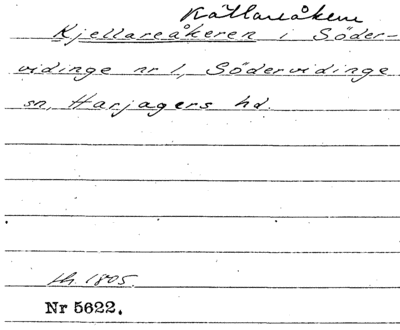 Källareåkern
Kjellareåkeren i Söder-
vidinge nr 1, Södervidinge
sn, Harjagers hd.
1805.
Nr 5622.